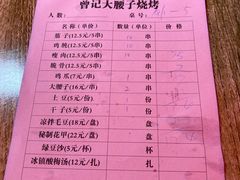 曾记大腰子烧烤
人数： 桌号：
名称（单价） 数量（单位） 价格
筋子（12.5元/5串） 串
鸡脆（12.5元/5串） 串
瘦肉（12.5元/5串） 串
脆骨（12.5元/5串） 串
鸡爪（7元/串） 1 串
大腰子（12元/串） 串
土豆（5元/份） 份
干子（5元/份） 份
凉拌毛豆（18元/盘） 盘
秘制花甲（22元/盘） 盘
绿豆沙（5元/杯） 杯
冰镇酸梅汤（12元/扎） 扎